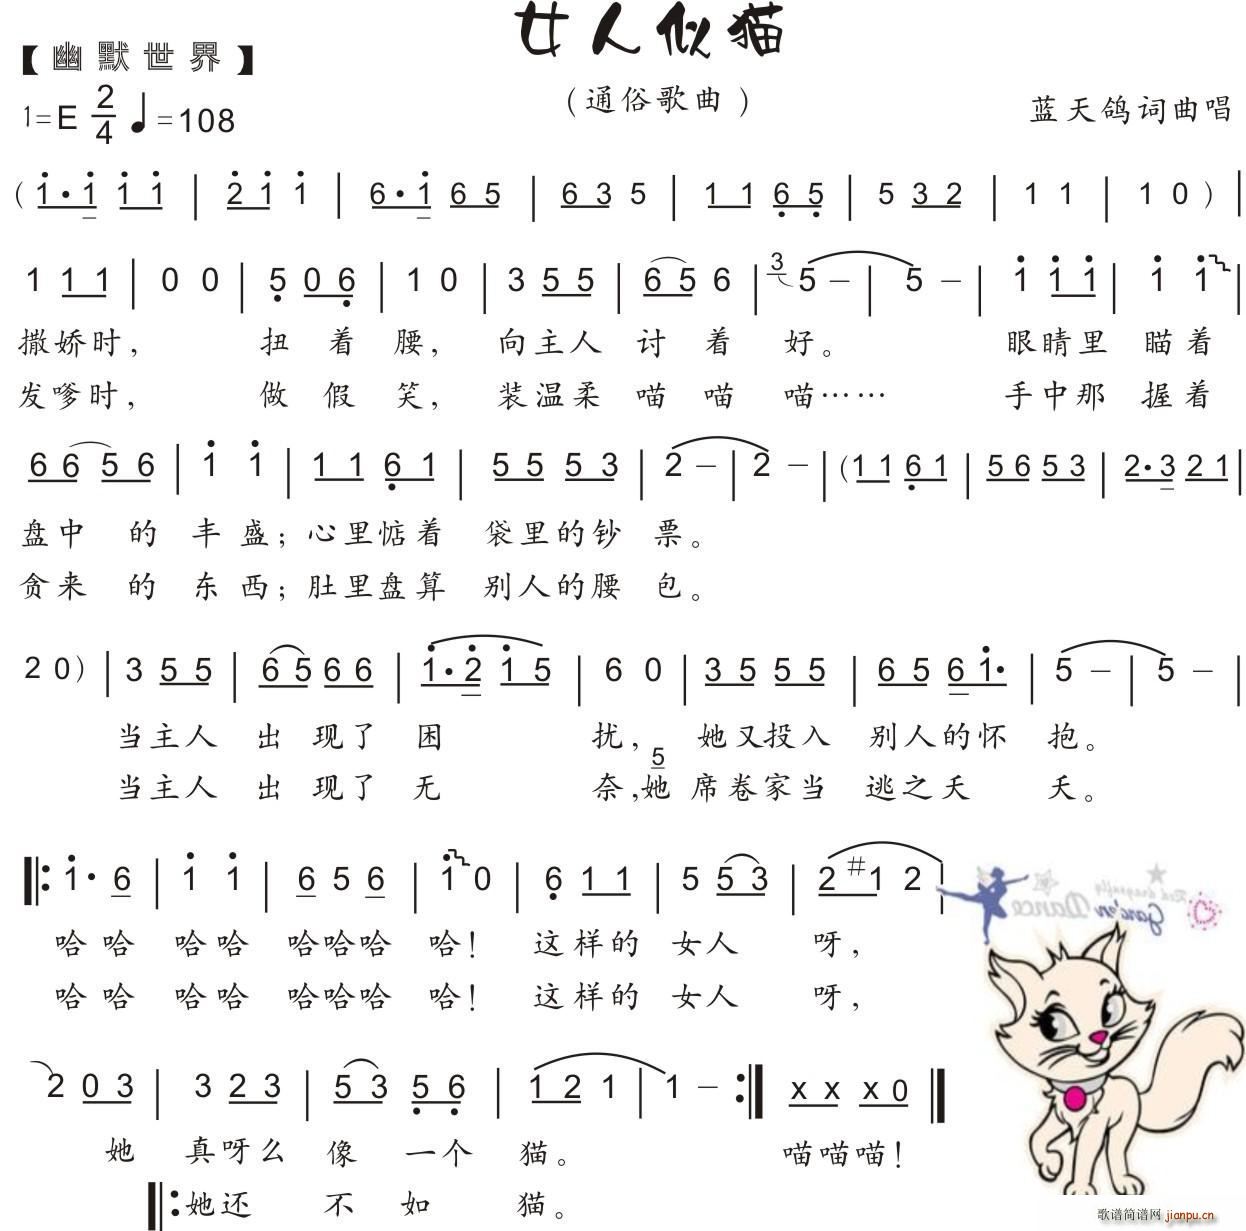 女人似猫
【幽默世界】
(通俗歌曲)
1=E 2/4 ♩=108
蓝天鸽词曲唱
(1·1 1 1 | 2 1 1 | 6·1 6 5 | 6 3 5 | 1 1 6 5 | 5 3 2 | 1 1 | 1 0 ) |
1 1 1 | 0 0 | 5 0 6 | 1 0 | 3 5 5 | 6 5 6 | 3 5 – | 5 – | 1 1 1 | 1 1 |
撒娇时, 扭着腰, 向主人讨着好。 眼睛里瞄着
发嗲时, 做假笑, 装温柔喵喵喵…… 手中那握着
6 6 5 6 | 1 1 | 1 1 6 1 | 5 5 5 3 | 2 – | 2 – | (1 1 6 1 | 5 6 5 3 | 2·3 2 1 |
盘中的丰盛; 心里惦着袋里的钞票。
贪来的东西; 肚里盘算别人的腰包。
2 0) | 3 5 5 | 6 5 6 6 | 1·2 1 5 | 6 0 | 3 5 5 5 | 6 5 6 1· | 5 – | 5 – |
当主人出现了困扰, 她又投入别人的怀抱。
5
当主人出现了无奈,她席卷家当逃之夭夭。
‖: 1· 6 | 1 1 | 6 5 6 | 1 0 | 6 1 1 | 5 5 3 | 2 #1 2 |
Red dragonfly
Garden Dance
哈哈哈哈哈哈哈哈! 这样的女人呀,
哈哈哈哈哈哈哈哈! 这样的女人呀,
2 0 3 | 3 2 3 | 5 3 5 6 | 1 2 1 | 1 – :‖ x x x 0 ‖
她真呀么像一个猫。 喵喵喵!
‖: 她还不如猫。
歌谱简谱网 jianpu.cn